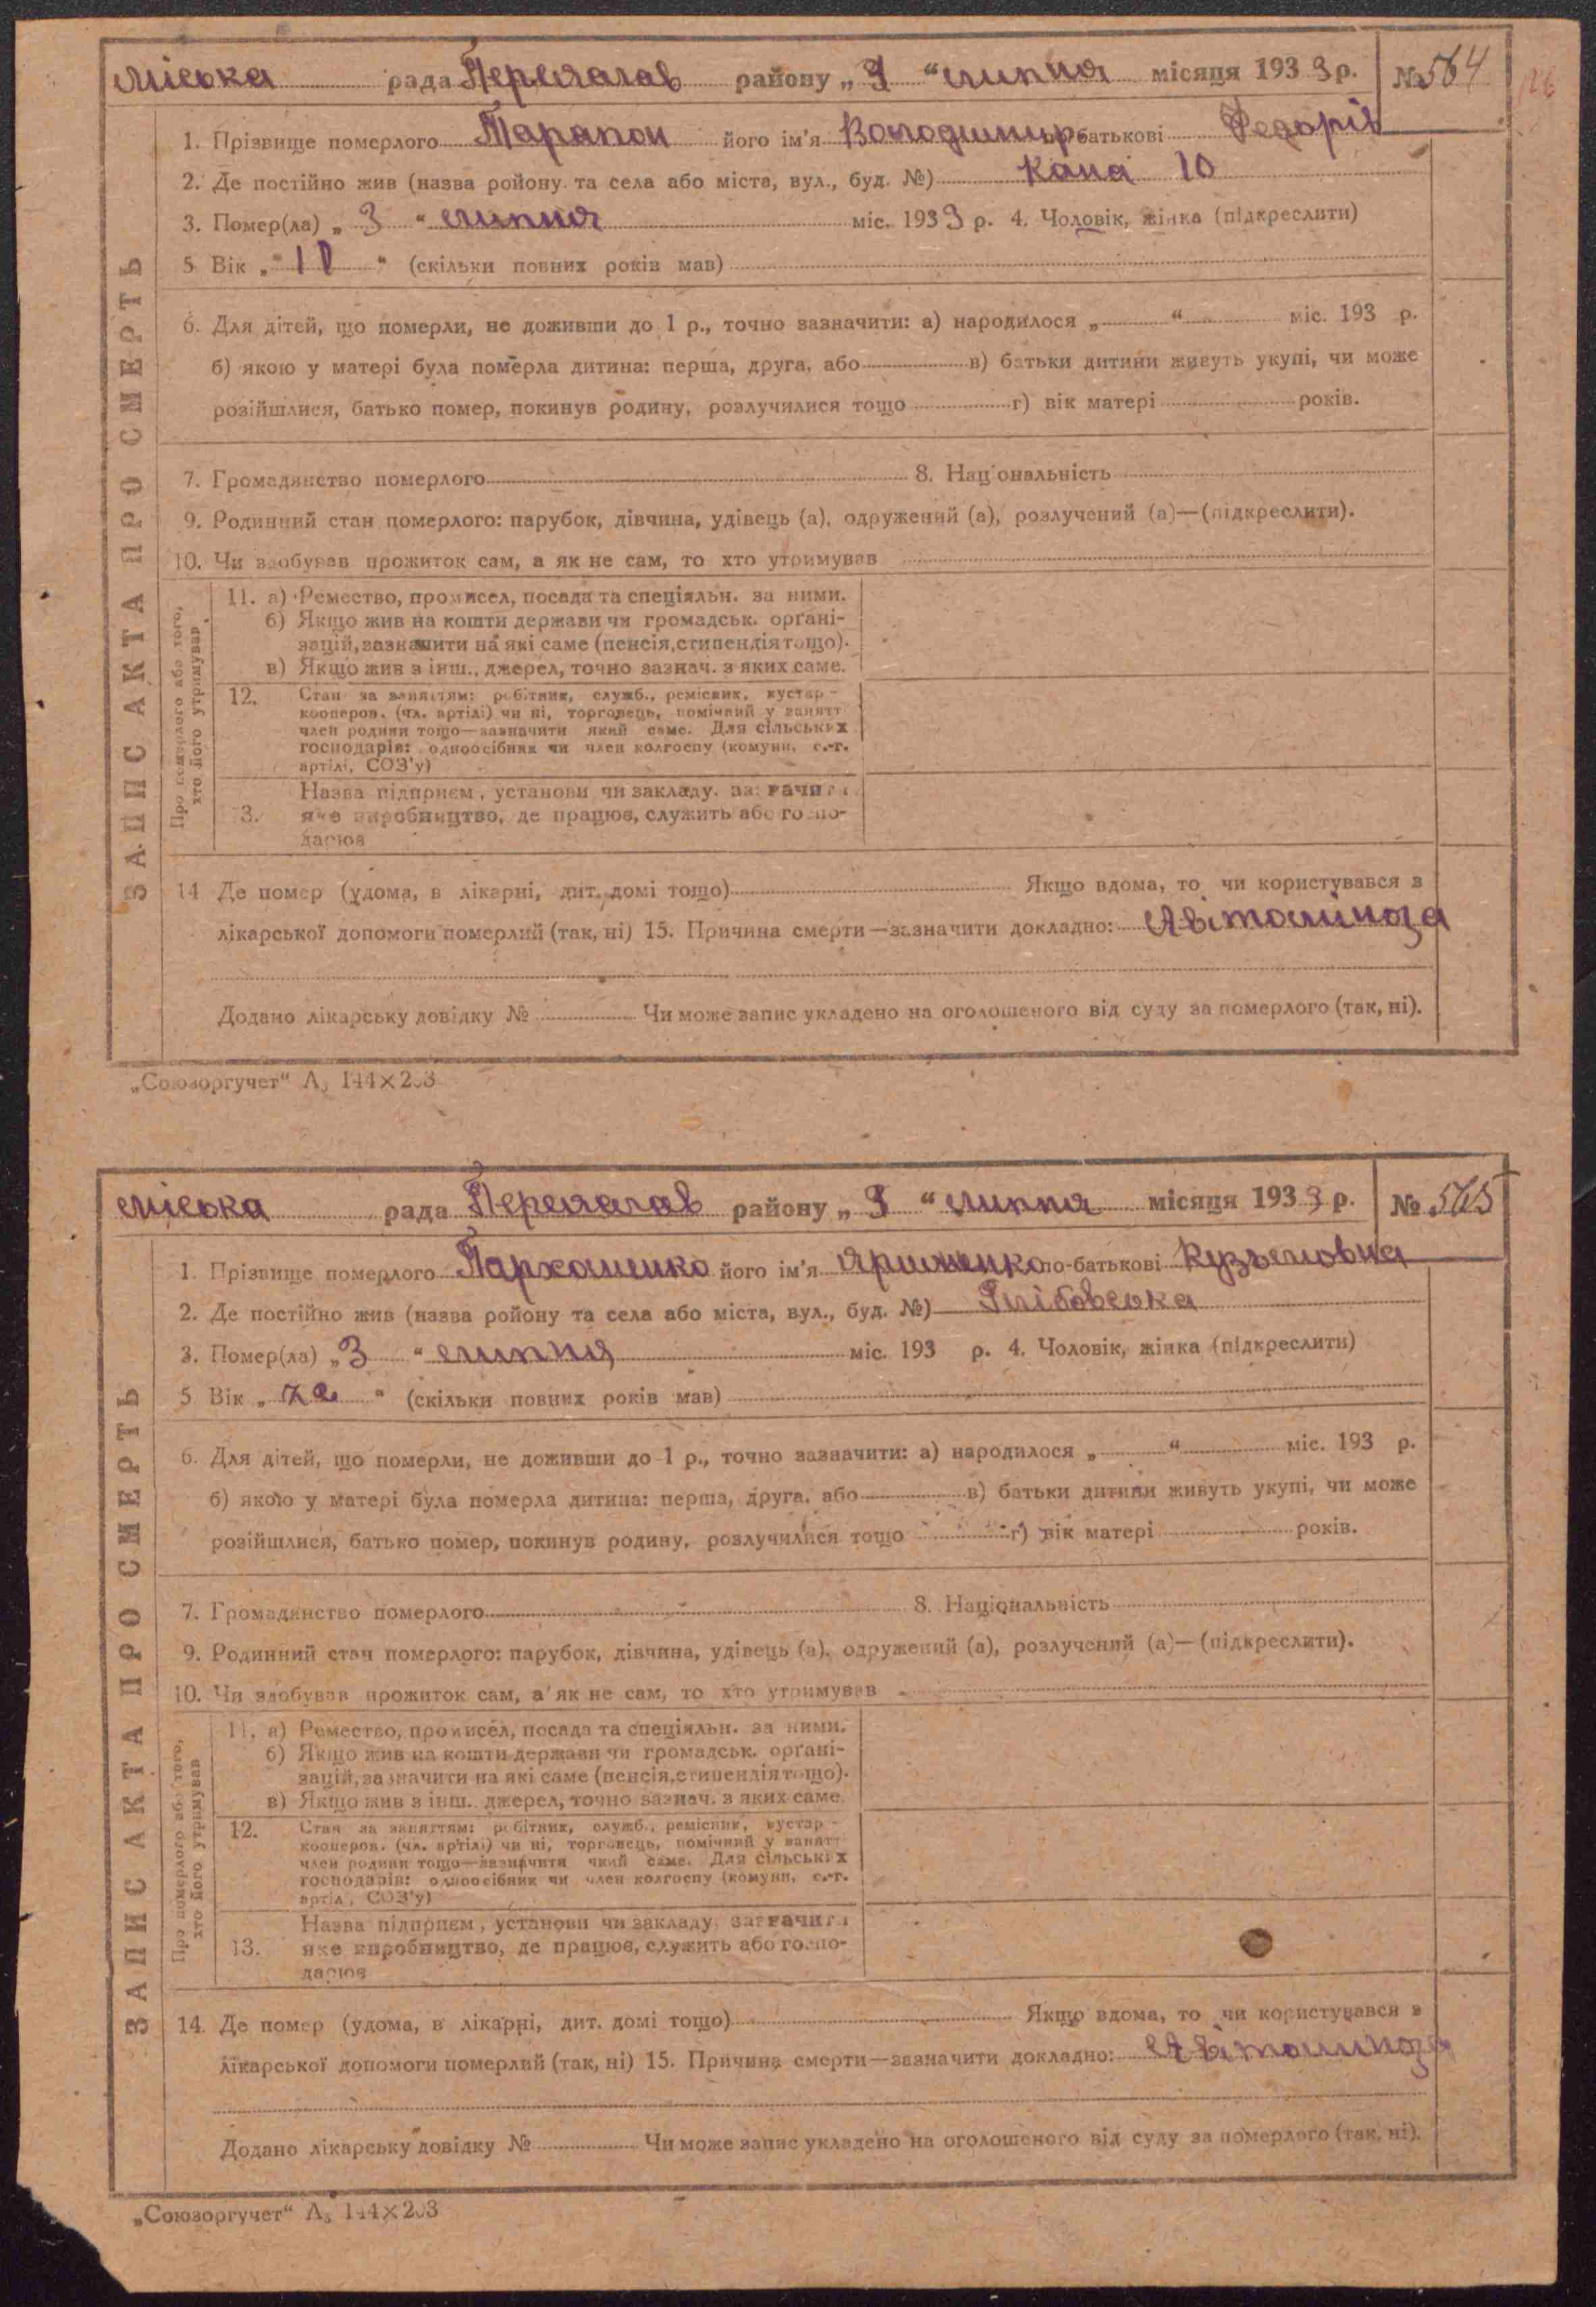 міська рада Переяслав району „3“ липня місяця 1933 р. № 564
126
ЗАПИС АКТА ПРО СМЕРТЬ
1. Прізвище померлого Тарапон його ім'я Володимир по-батькові Федорів
2. Де постійно жив (назва ройону та села або міста, вул., буд. №) 10
3. Помер(ла) „3“ липня міс. 1933 р. 4. Чоловік, жінка (підкреслити)
5 Вік „ “ (скільки повних років мав)
6. Для дітей, що померли, не доживши до 1 р., точно зазначити: а) народилося „ “ міс. 193 р.
б) якою у матері була померла дитина: перша, друга, або в) батьки дитини живуть укупі, чи може
розійшлися, батько помер, покинув родину, розлучилися тощо г) вік матері років.
7. Громадянство померлого 8. Національність
9. Родинний стан померлого: парубок, дівчина, удівець (а), одружений (а), розлучений (а)—(підкреслити).
10. Чи здобував прожиток сам, а як не сам, то хто утримував
Про померлого або того,
хто його утримував
11. а) Ремество, промисел, посада та спеціяльн. за ними.
б) Якщо жив на кошти держави чи громадськ. орґані-
зацій, зазначити на які саме (пенсія, стипендія тощо).
в) Якщо жив з інш., джерел, точно зазнач. з яких саме.
12. Стан за заняттям: робітник, служб., ремісник, кустар -
кооперов. (чл. артілі) чи ні, торговець, помічний у занятт
член родини тощо—зазначити який саме. Для сільських
господарів: одноосібник чи член колгоспу (комуни, с.-г.
артілі, СОЗ'у)
Назва підприєм, установи чи закладу, зазначити
13. яке виробництво, де працює, служить або госпо-
дарює
14 Де помер (удома, в лікарні, дит. домі тощо) Якщо вдома, то чи користувався з
лікарської допомоги померлий (так, ні) 15. Причина смерти—зазначити докладно: Авітаміноза
Додано лікарську довідку № Чи може запис укладено на оголошеного від суду за померлого (так, ні).
„Союзоргучет“ А₅ 144×203
міська рада Переяслав району „3“ липня місяця 1933 р. № 565
ЗАПИС АКТА ПРО СМЕРТЬ
1. Прізвище померлого Пархоменко його ім'я по-батькові Кузьмовна
2. Де постійно жив (назва ройону та села або міста, вул., буд. №) Глібовська
3. Помер(ла) „3“ липня міс. 193 р. 4. Чоловік, жінка (підкреслити)
5 Вік „72“ (скільки повних років мав)
6. Для дітей, що померли, не доживши до 1 р., точно зазначити: а) народилося „ “ міс. 193 р.
б) якою у матері була померла дитина: перша, друга, або в) батьки дитини живуть укупі, чи може
розійшлися, батько помер, покинув родину, розлучилися тощо г) вік матері років.
7. Громадянство померлого 8. Національність
9. Родинний стан померлого: парубок, дівчина, удівець (а), одружений (а), розлучений (а)—(підкреслити).
10. Чи здобував прожиток сам, а як не сам, то хто утримував
Про померлого або того,
хто його утримував
11. а) Ремество, промисел, посада та спеціяльн. за ними.
б) Якщо жив на кошти держави чи громадськ. орґані-
зацій, зазначити на які саме (пенсія, стипендія тощо).
в) Якщо жив з інш. джерел, точно зазнач. з яких саме.
12. Стан за заняттям: робітник, служб., ремісник, кустар -
кооперов. (чл. артілі) чи ні, торговець, помічний у занятт
член родини тощо—зазначити який саме. Для сільських
господарів: одноосібник чи член колгоспу (комуни, с.-г.
артілі, СОЗ'у)
Назва підприєм, установи чи закладу, зазначити
13. яке виробництво, де працює, служить або госпо-
дарює
14. Де помер (удома, в лікарні, дит. домі тощо) Якщо вдома, то чи користувався з
лікарської допомоги померлий (так, ні) 15. Причина смерти—зазначити докладно: Авітаміноза
Додано лікарську довідку № Чи може запис укладено на оголошеного від суду за померлого (так, ні).
„Союзоргучет“ А₅ 144×203